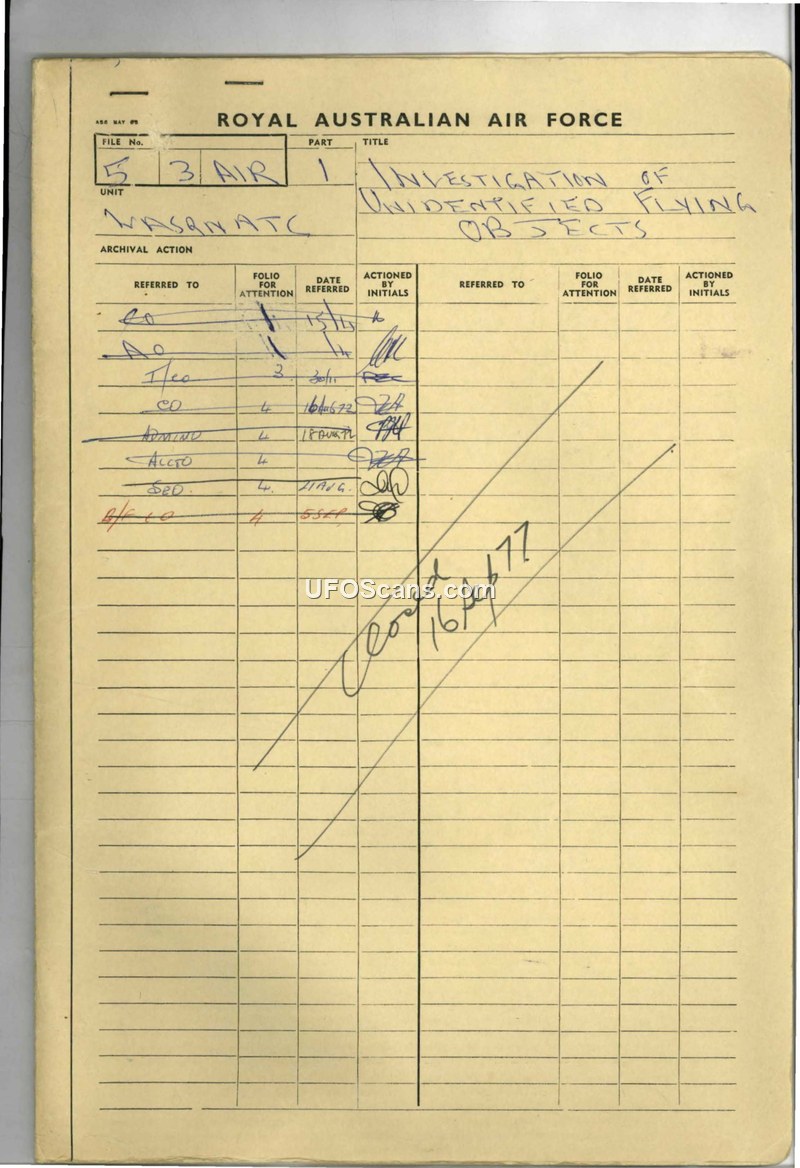 ROYAL AUSTRALIAN AIR FORCE
FILE No. PART TITLE
5 3 AIR 1 INVESTIGATION OF
UNIT
UNIDENTIFIED FLYING
WASQNATC
OBJECTS
ARCHIVAL ACTION
REFERRED TO FOLIO FOR ATTENTION DATE REFERRED ACTIONED BY INITIALS REFERRED TO FOLIO FOR ATTENTION DATE REFERRED ACTIONED BY INITIALS
CO 1 15/4
AO 1 /4
T/CO 3 30/11
CO 4 16 AUG 72
ADMINO 4 18 AUG 72
ACCTO 4
4 21 AUG.
B/F CO 4 5 SEP
UFOScans.com
Closed
16 Feb 77